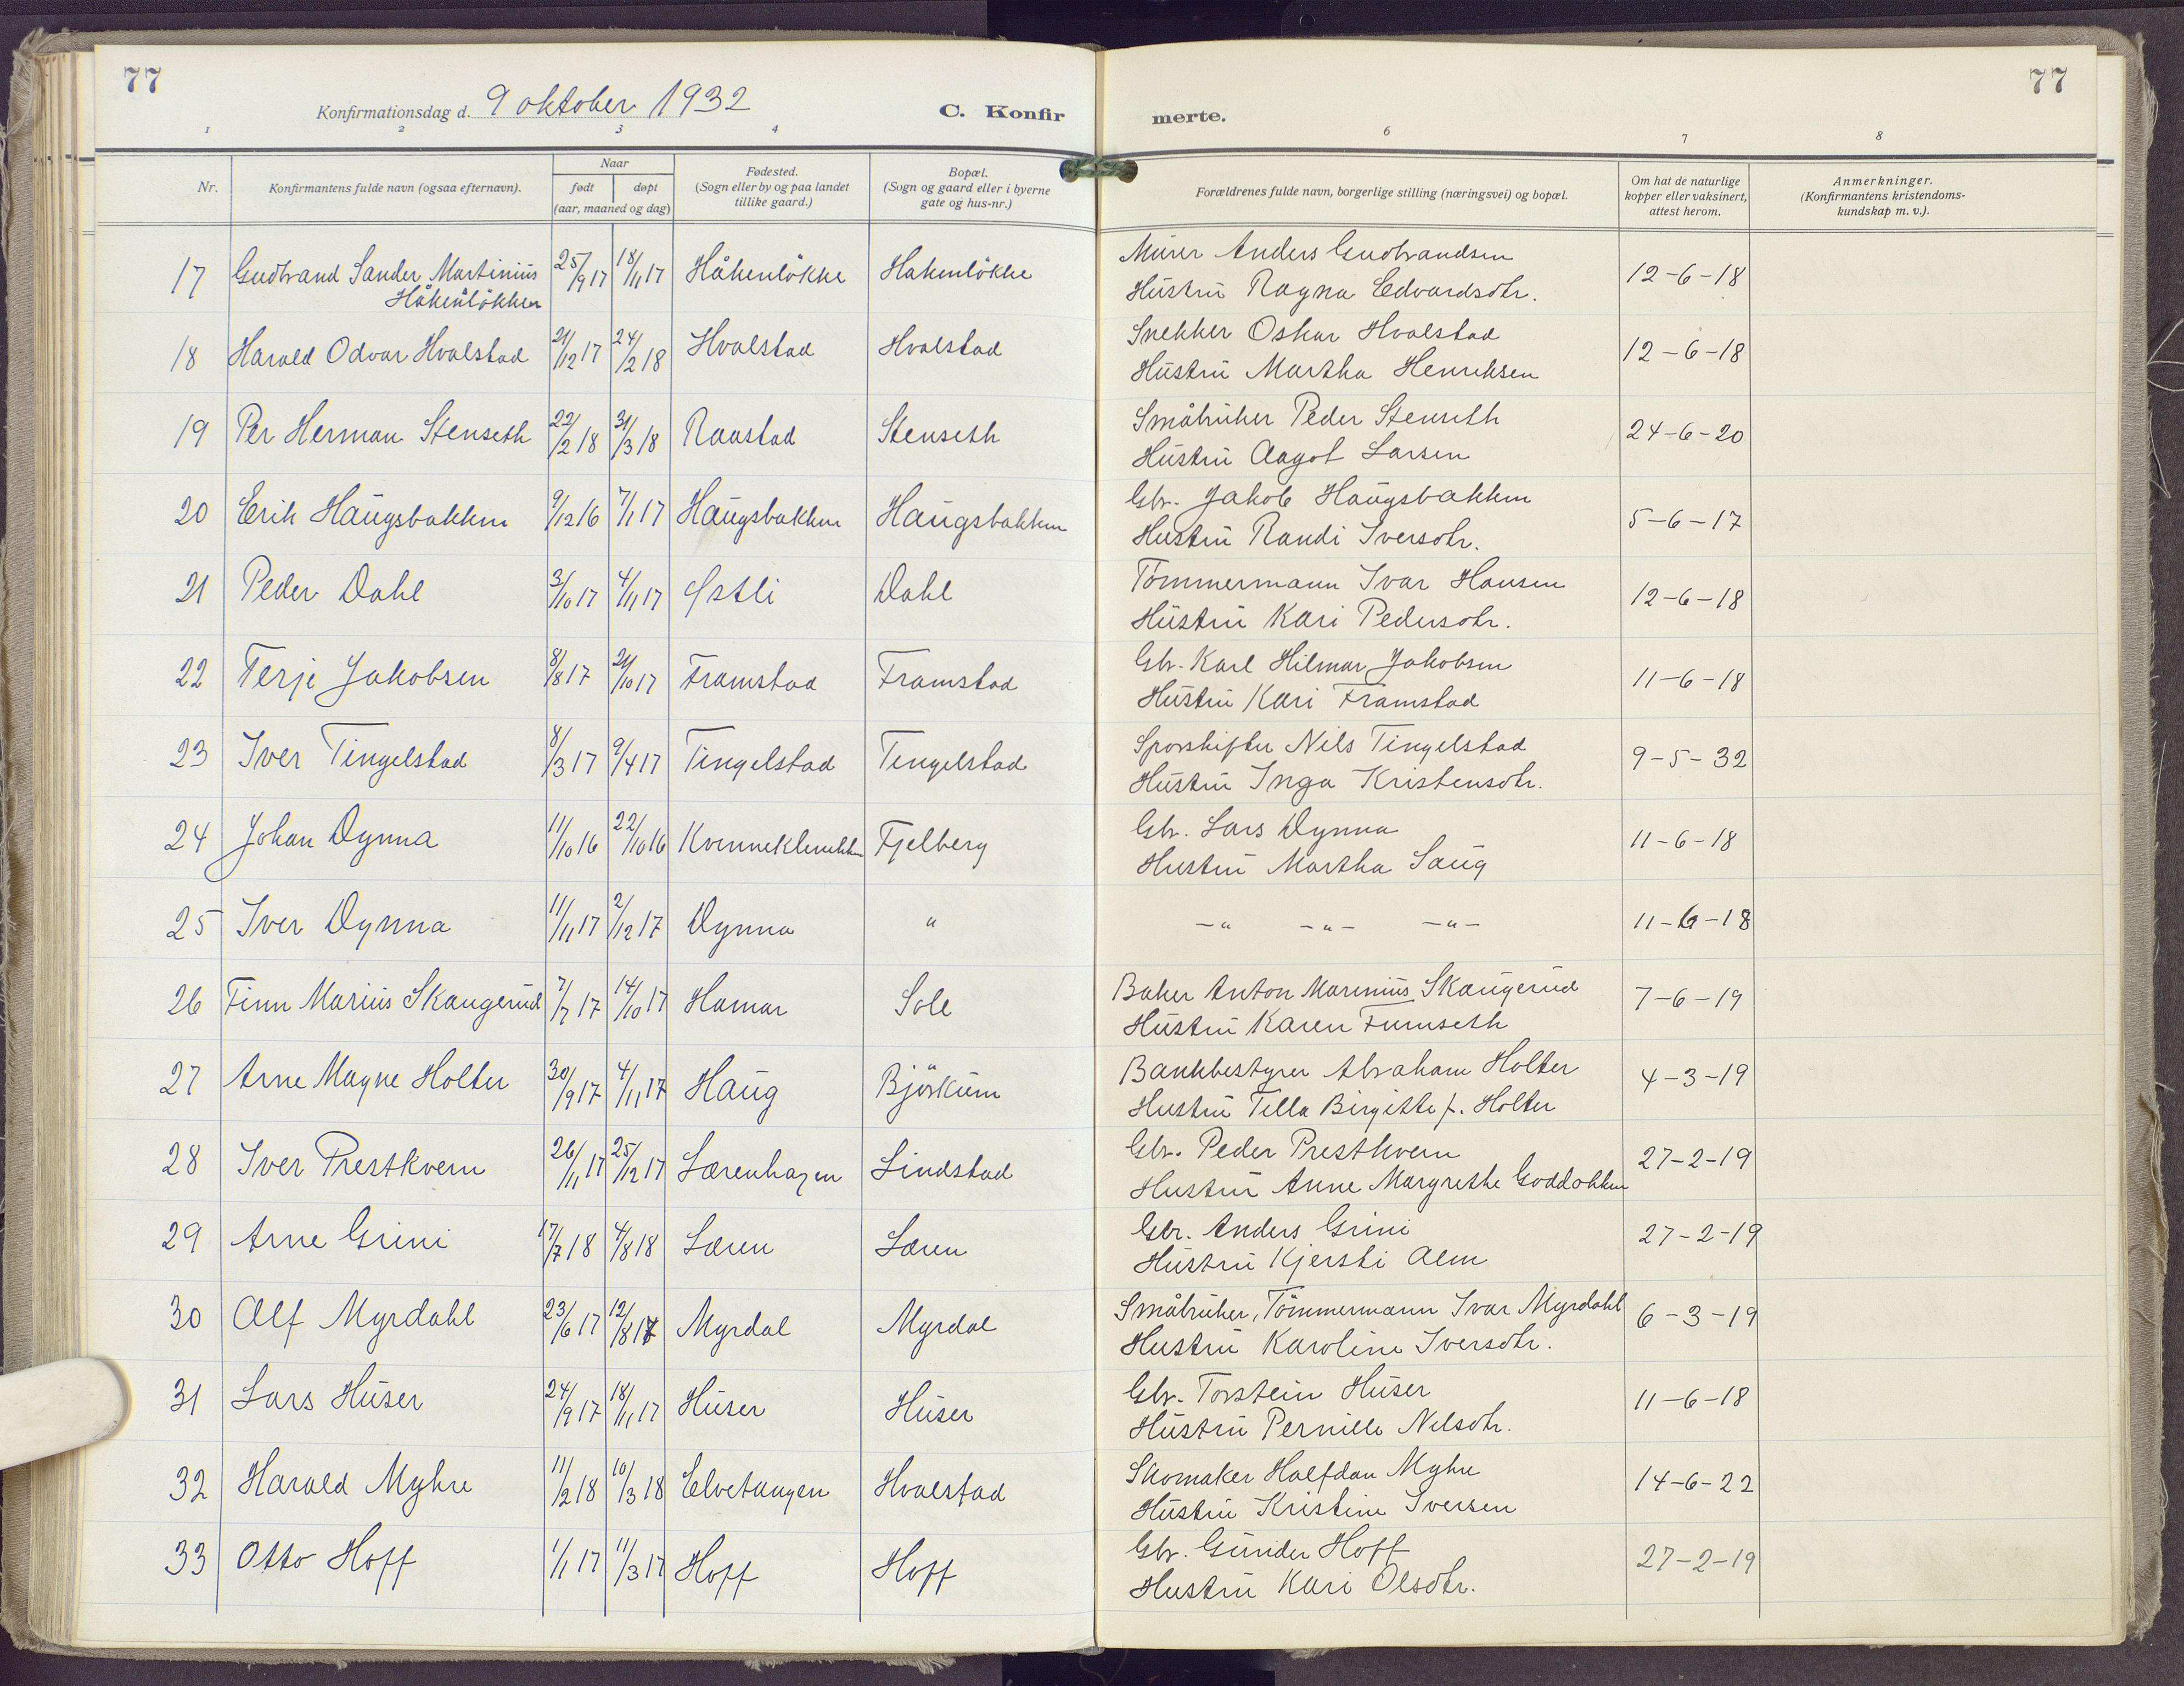 77
77
Konfirmationsdag d. 9 oktober 1932
C. Konfir merte.
1 2 3 4 6 7 8
Nr.
Konfirmantens fulde navn (ogsaa efternavn).
Naar
født døpt
(aar, maaned og dag)
Fødested.
(Sogn eller by og paa landet
tillike gaard.)
Bopæl.
(Sogn og gaard eller i byerne
gate og hus-nr.)
Forældrenes fulde navn, borgerlige stilling (næringsvei) og bopæl.
Om hat de naturlige
kopper eller vaksinert,
attest herom.
Anmerkninger.
(Konfirmantens kristendoms-
kundskap m. v.).
17 Gudbrand Sander Martinius 25/9 17 18/11 17 Håkenlökke Hakenlökke Murer Anders Gudbrandsen 12-6-18
Håkenlökken Hustru Ragna Edvardsdtr.
18 Harald Odvar Hvalstad 21/12 17 24/2 18 Hvalstad Hvalstad Snekker Oskar Hvalstad 12-6-18
Hustru Martha Henriksen
19 Per Herman Stenseth 22/2 18 31/3 18 Raastad Stenseth Småbruker Peder Stenseth 24-6-20
Hustru Aagot Larsen
20 Erik Haugsbakken 9/12 16 7/1 17 Haugsbakken Haugsbakken Gbr. Jakob Haugsbakken 5-6-17
Hustru Randi Iversdtr.
21 Peder Dahl 3/10 17 4/11 17 Østli Dahl Tömmermann Ivar Hansen 12-6-18
Hustru Kari Pedersdtr.
22 Terje Jakobsen 8/8 17 21/10 17 Framstad Framstad Gbr. Karl Hilmar Jakobsen 11-6-18
Hustru Kari Framstad
23 Iver Tingelstad 8/3 17 9/4 17 Tingelstad Tingelstad Sporskifter Nils Tingelstad 9-5-32
Hustru Inga Kristensdtr.
24 Johan Dynna 11/10 16 22/10 16 Kvenneklenekken Fjelberg Gbr. Lars Dynna 11-6-18
Hustru Martha Saug
25 Iver Dynna 11/11 17 2/12 17 Dynna " -"- -"- -"- 11-6-18
26 Finn Marius Skaugerud 7/7 17 14/10 17 Hamar Sole Baker Anton Marenius Skaugerud 7-6-19
Hustru Karen Furuseth
27 Arne Magne Holter 30/9 17 4/11 17 Haug Björkum Bankbestyrer Abraham Holter 4-3-19
Hustru Tella Birgitte f. Holter
28 Iver Prestkvern 26/11 17 25/12 17 Lærenhagen Lindstad Gbr. Peder Prestkvern 27-2-19
Hustru Anne Margrethe Goddokken
29 Arne Grini 17/7 18 4/8 18 Læren Læren Gbr. Anders Grini 27-2-19
Hustru Kjersti Alm
30 Alf Myrdahl 23/6 17 12/8 17 Myrdal Myrdal Småbruker, Tömmermann Ivar Myrdahl 6-3-19
Hustru Karoline Iversdtr.
31 Lars Huser 24/9 17 18/11 17 Huser Huser Gbr. Torstein Huser 11-6-18
Hustru Pernille Nilsdtr.
32 Harald Myhre 11/2 18 10/3 18 Elvetangen Hvalstad Skomaker Halfdan Myhre 14-6-22
Hustru Kristine Iversen
33 Otto Hoff 1/1 17 11/3 17 Hoff Hoff Gbr. Gunder Hoff 27-2-19
Hustru Kari Olsdtr.